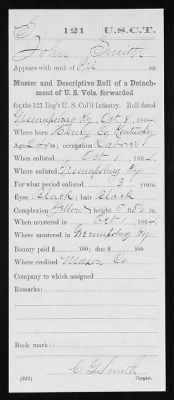 S 121 U.S.C.T.
John Smith
Appears with rank of Pvt on
Muster and Descriptive Roll of a Detach-
ment of U. S. Vols. forwarded
for the 121 Reg't U. S. Col'd Infantry. Roll dated
Greensburg Ky Oct 8, 1864
Where born Henry Co Kentucky
Age 24 y'rs; occupation Labor
When enlisted Oct 1, 1864
Where enlisted Greensburg Ky
For what period enlisted 3 years
Eyes Black; hair Black
Complexion Yellow; height 5 ft. in.
When mustered in Oct 1, 1864
Where mustered in Greensburg Ky
Bounty paid $ 100; due $ 100
Where credited Mason Co.
Company to which assigned
Remarks:
Book mark:
C G Smith
Copyist.